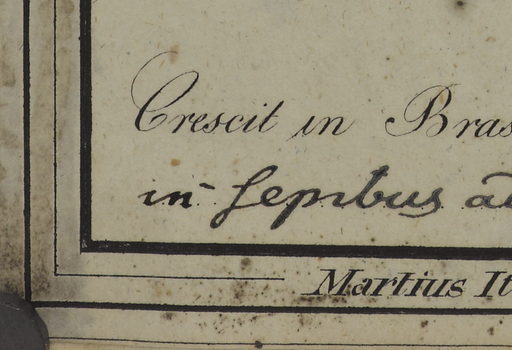 Crescit in Bras
in sepibus ad
Martius It